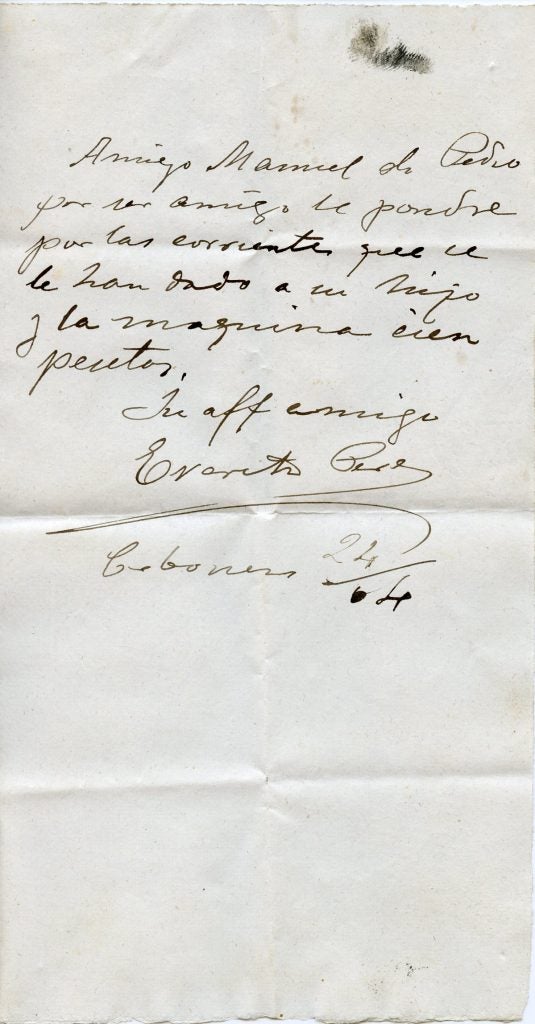 Amigo Manuel de Pedro
por ser amigo le pondre
por las corriente que se
le han dado a su hijo
y la maquina cien
pesetas.
Su aff amigo
Evarito Perez
24/64